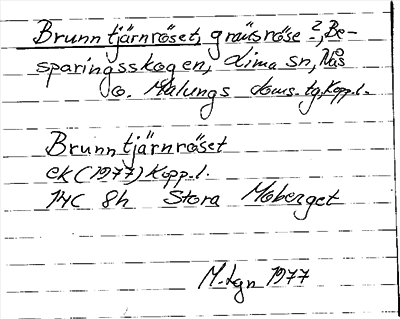 Brunntjärnröset, gränsröse?, Be-
sparingsskogen, Lima sn, Nås
o. Malungs doms. tg, Kopp. l.
Brunntjärnröset
ek (1977) Kopp. l.
14C 8h Stora Moberget
M. Lgn 1977